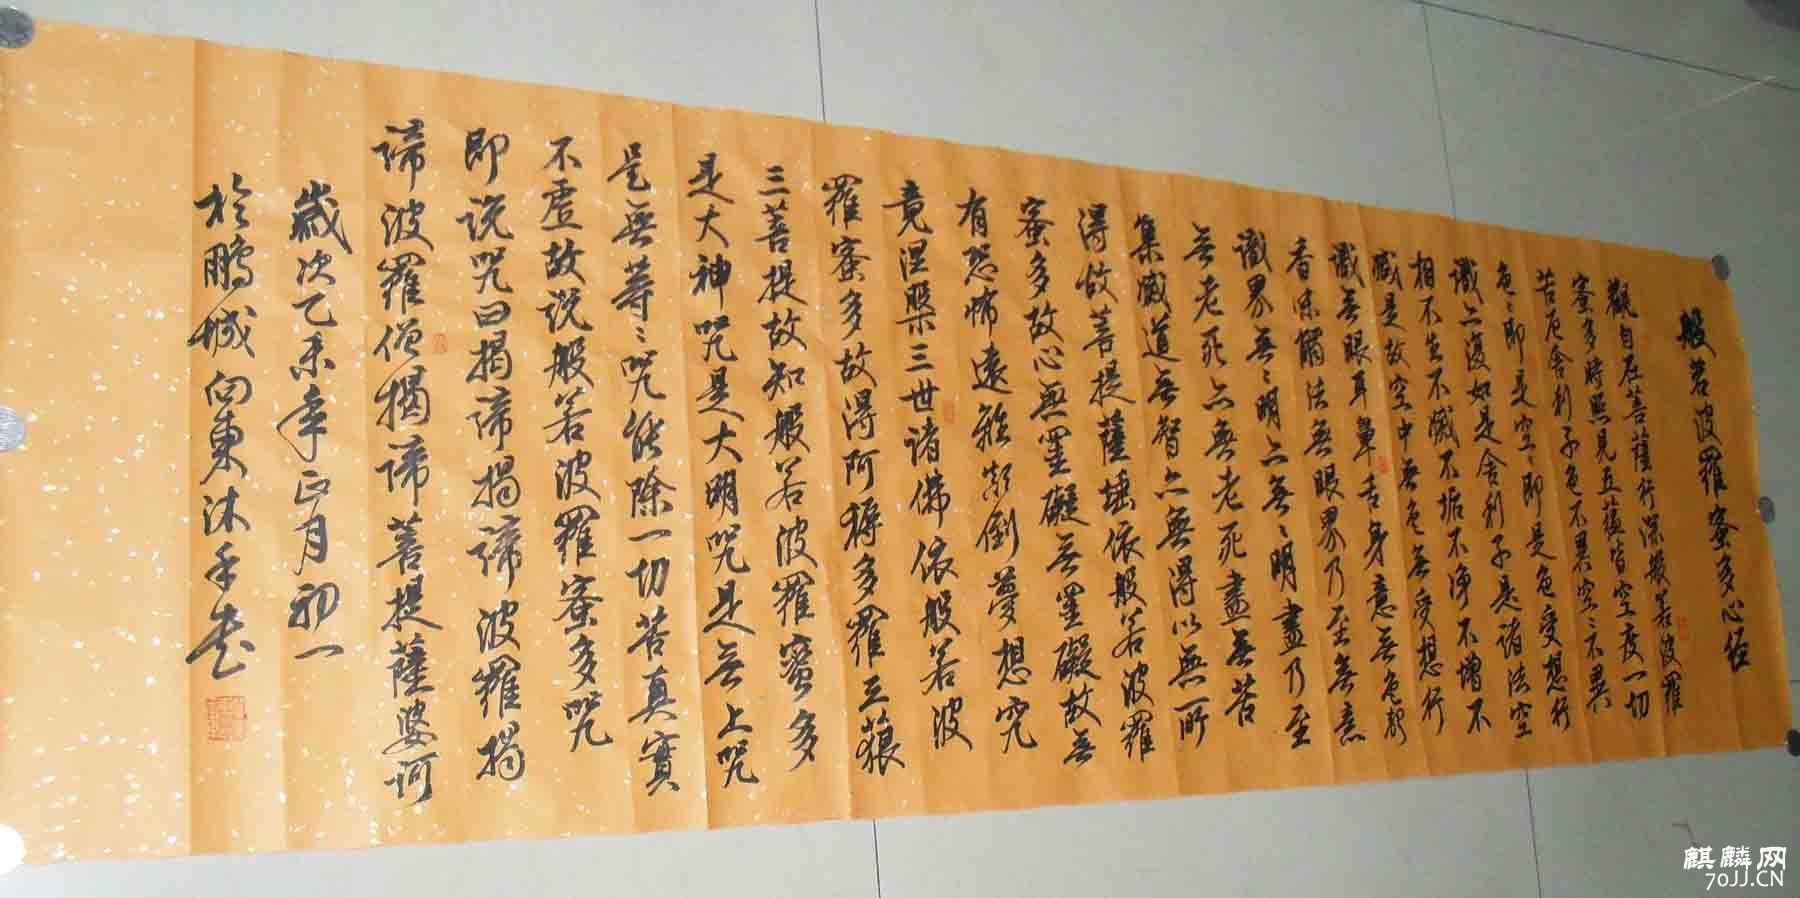 般若波羅蜜多心經
觀自在菩薩行深般若波羅
蜜多時照見五蘊皆空度一切
苦厄舍利子色不異空々不異
色々即是空々即是色受想行
識亦復如是舍利子是諸法空
相不生不滅不垢不净不增不
減是故空中無色無受想行
識無眼耳鼻舌身意無色聲
香味觸法無眼界乃至無意
識界無無明亦無無明盡乃至
無老死亦無老死盡無苦
集滅道無智亦無得以無所
得故菩提薩埵依般若波羅
蜜多故心無罣礙無罣礙故無
有恐怖遠離顛倒夢想究
竟涅槃三世诸佛依般若波
羅蜜多故得阿耨多羅三藐
三菩提故知般若波羅蜜多
是大神咒是大明咒是無上咒
是無等々咒能除一切苦真實
不虛故说般若波羅蜜多咒
即说咒曰揭諦揭諦波羅揭
諦波羅僧揭諦菩提薩婆訶
歲次乙未年正月初一
於鵬城向東沐手書
麒麟网
70JJ.CN